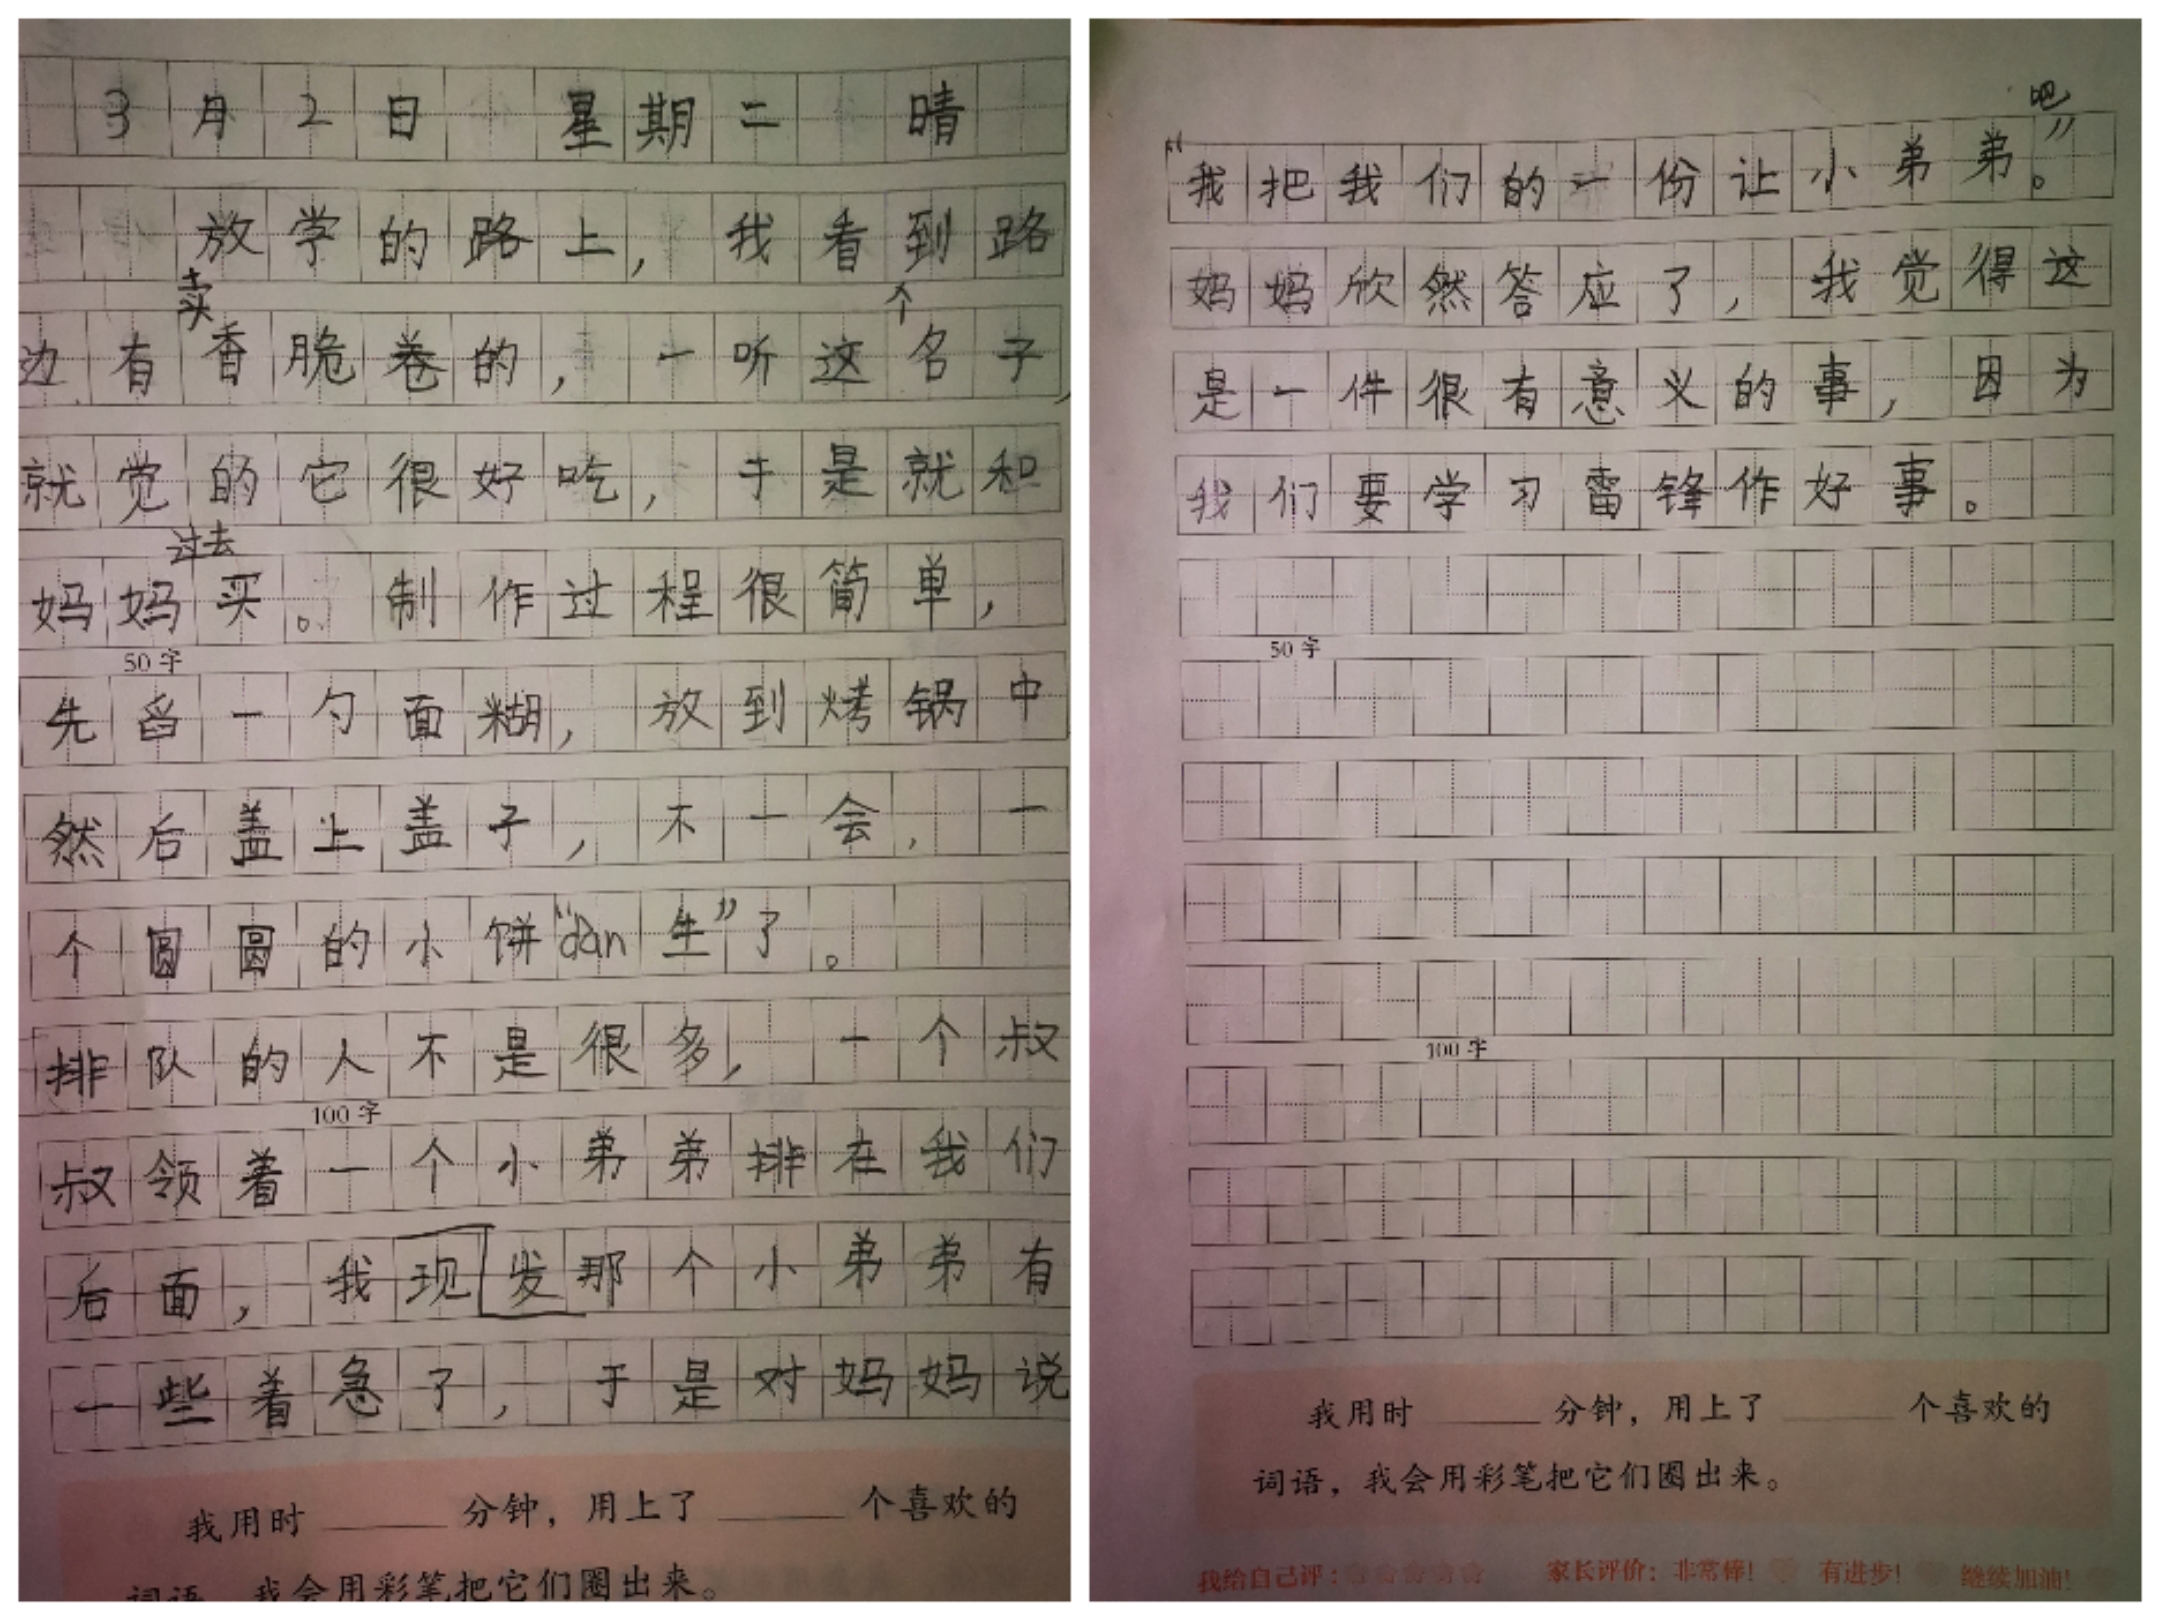 3月2日 星期二 晴
放学的路上，我看到路
卖 个
边有香脆卷的，一听这名子，
就觉的它很好吃，于是就和
过去
妈妈买。制作过程很简单，
50字
先舀一勺面糊，放到烤锅中
然后盖上盖子，不一会，一
个圆圆的小饼“dàn生”了。
排队的人不是很多，一个叔
100字
叔领着一个小弟弟排在我们
后面，我现发那个小弟弟有
一些着急了，于是对妈妈说
我用时 分钟，用上了 个喜欢的
词语，我会用彩笔把它们圈出来。
吧
“我把我们的一份让小弟弟。”
妈妈欣然答应了，我觉得这
是一件很有意义的事，因为
我们要学习雷锋作好事。
50字
100字
我用时 分钟，用上了 个喜欢的
词语，我会用彩笔把它们圈出来。
我给自己评： 家长评价：非常棒！ 有进步！ 继续加油！